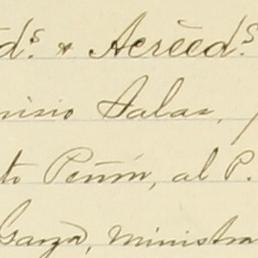 ds. & Acréeds.
nisio Salas,
to Peñón, al P.
Garza, ministra